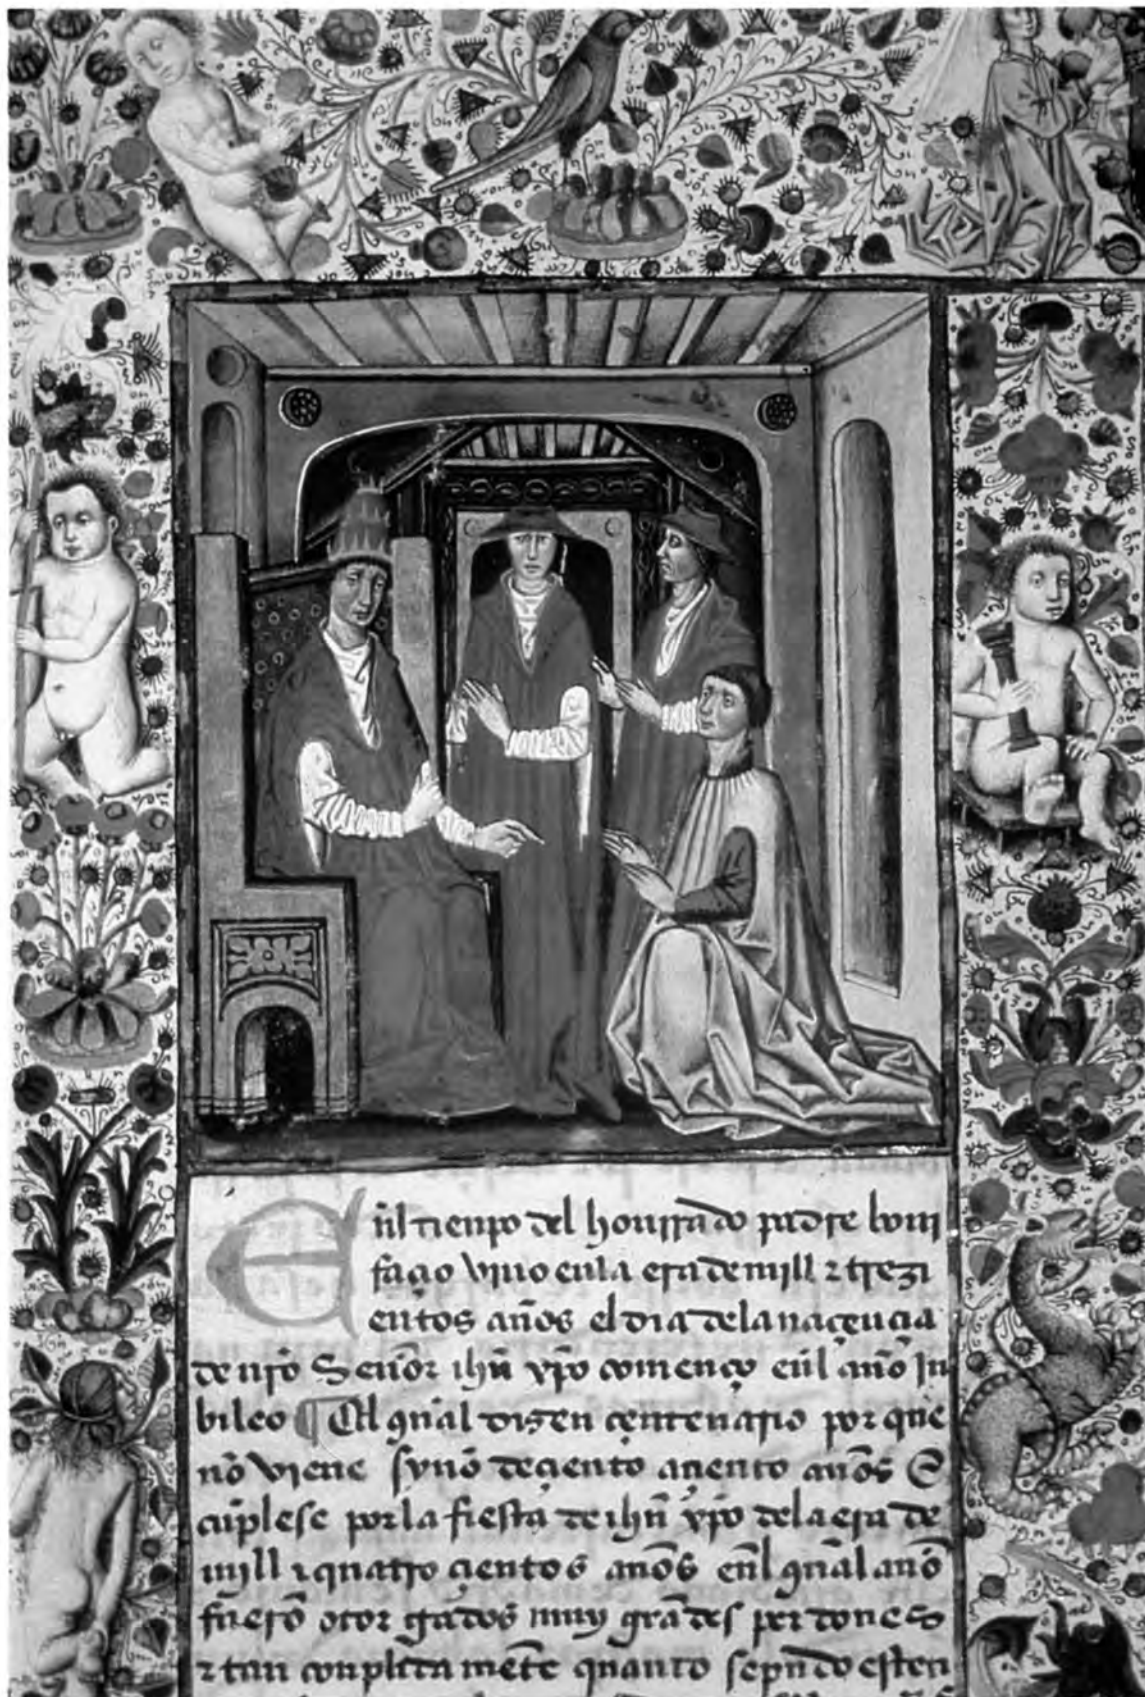 Eñl tienpo del honrrado padre boni
façio vino en la era de mjll ⁊ trezi
entos años el dia dela naçençia
de nr̃o Señor ihũ xp̃o començo eñl año ju
bileo ¶ El qual dizen çentenario por que
nõ viene synõ de çiento a çiento años E
cũplese por la fiesta de ihũ xp̃o dela era de
mjll ⁊ quatro çientos años eñl qual año
fuerõ otorgados muy grãdes perdones
⁊ tan conplida mẽte quanto se pudo esten